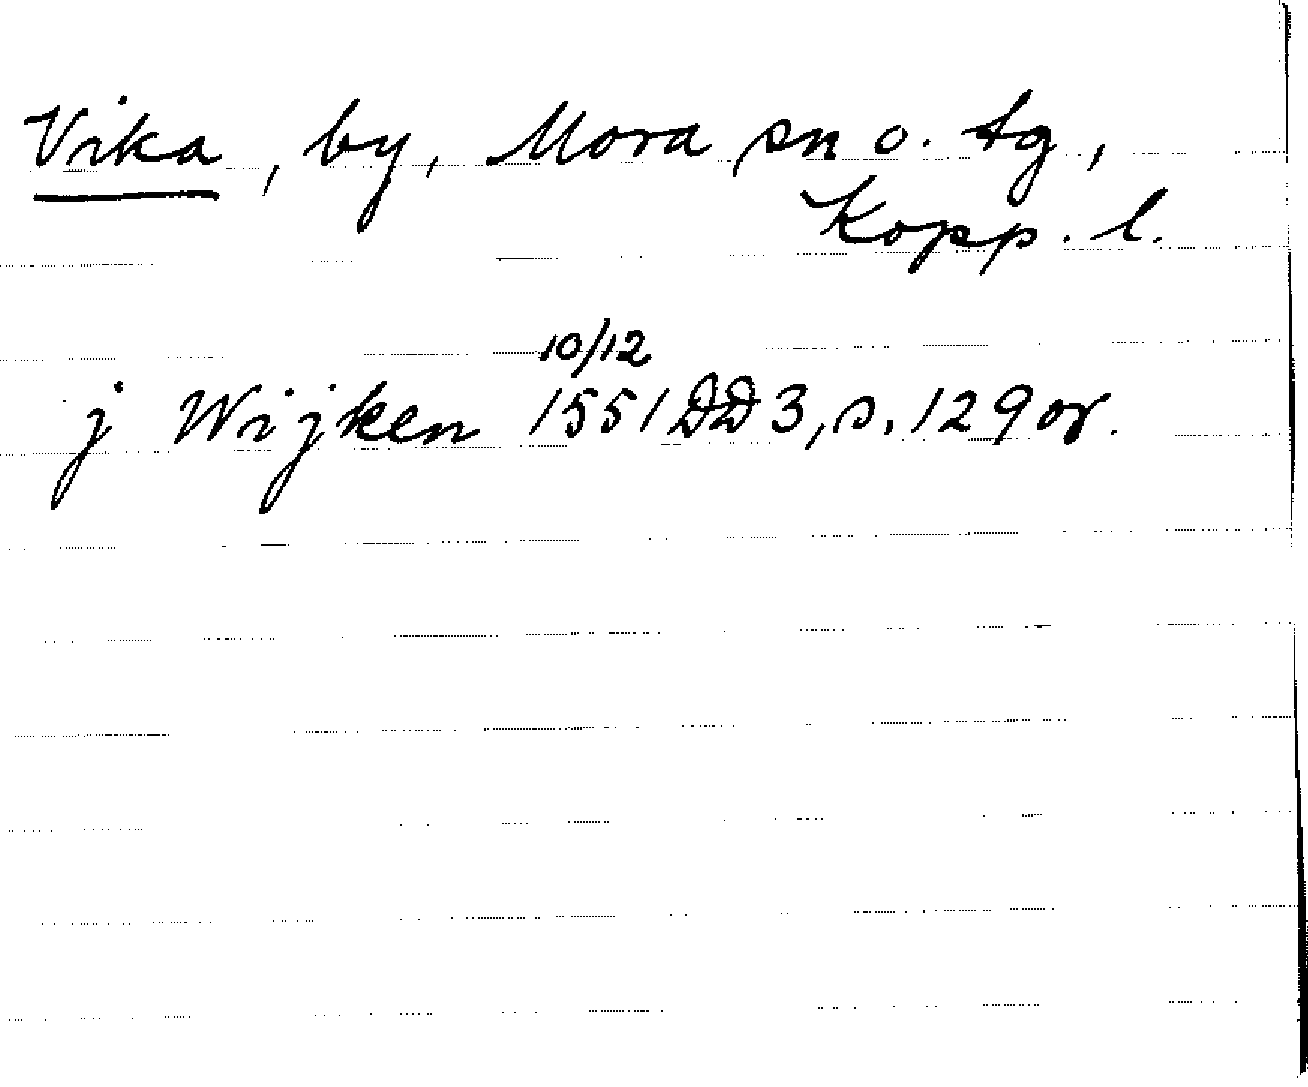 Vika, by, Mora sn o. tg,
Kopp. l.
10/12
j Wijken 1551 DD 3, s. 129 or.